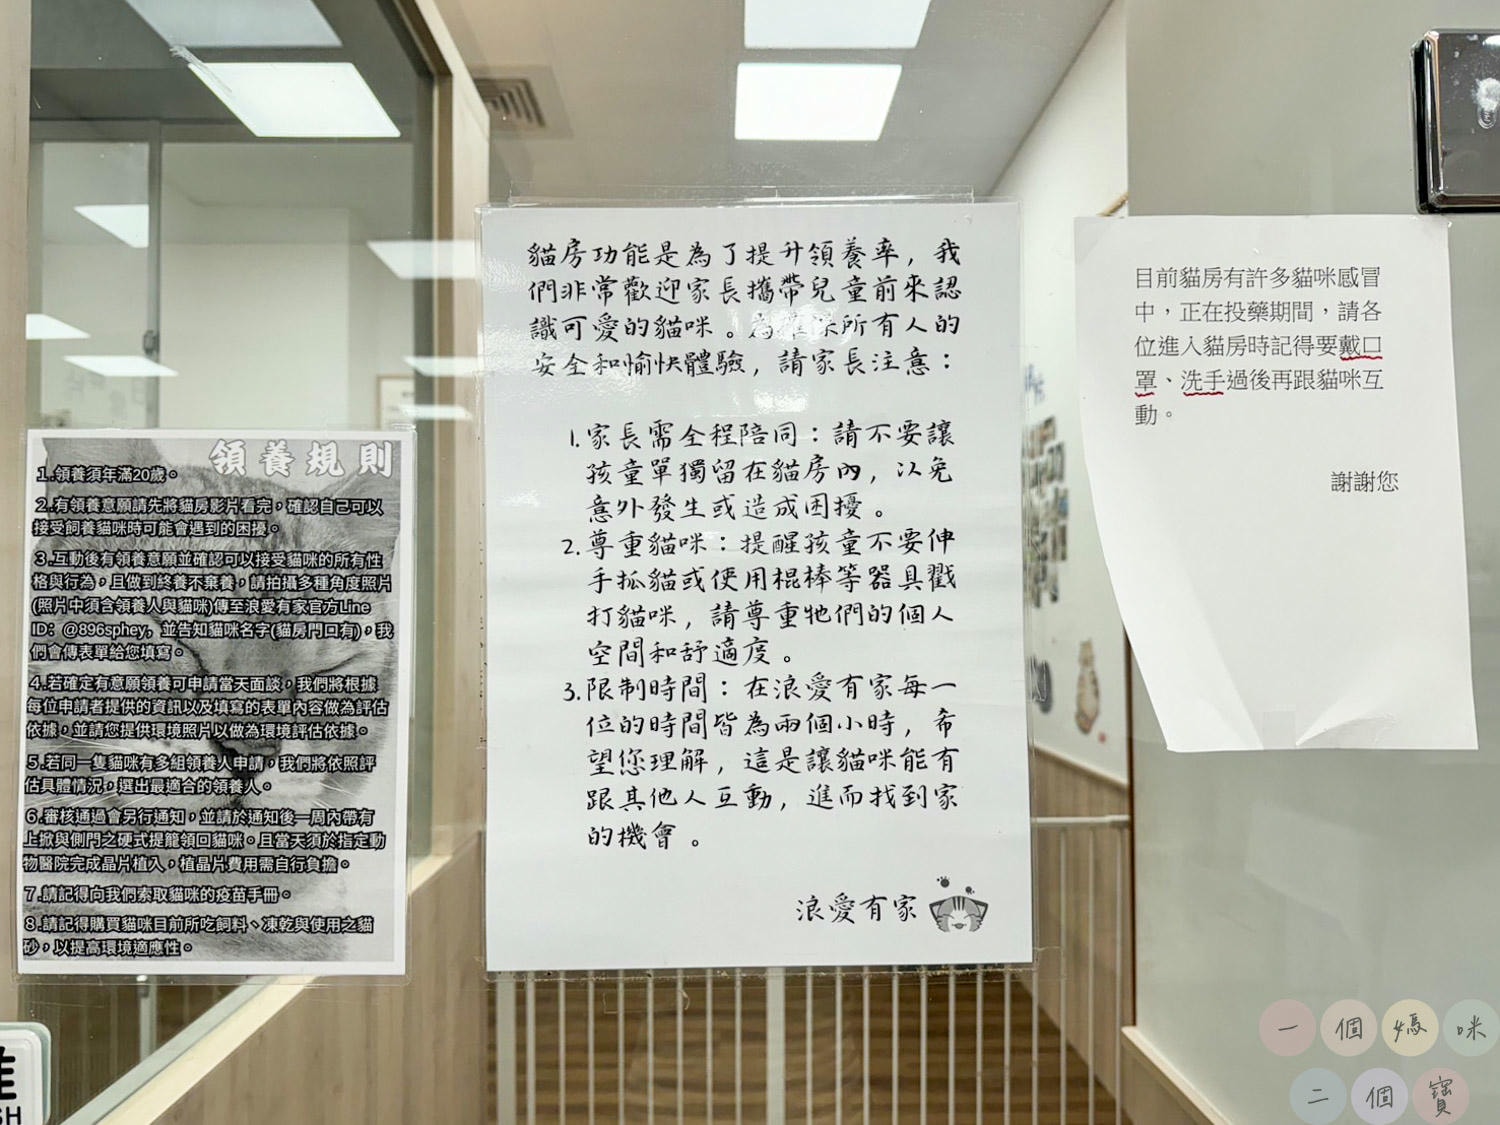 領養規則
1.領養須年滿20歲。
2.有領養意願請先將貓房影片看完，確認自己可以
接受飼養貓咪時可能會遇到的困擾。
3.互動後有領養意願並確認可以接受貓咪的所有性
格與行為，且做到終養不棄養，請拍攝多種角度照片
(照片中須含領養人與貓咪)傳至浪愛有家官方Line
ID：@896sphey，並告知貓咪名字(貓房門口有)，我
們會傳表單給您填寫。
4.若確定有意願領養可申請當天面談，我們將根據
每位申請者提供的資訊以及填寫的表單內容做為評估
依據，並請您提供環境照片以做為環境評估依據。
5.若同一隻貓咪有多組領養人申請，我們將依照評
估具體情況，選出最適合的領養人。
6.審核通過會另行通知，並請於通知後一周內帶有
上掀與側門之硬式提籠領回貓咪。且當天須於指定動
物醫院完成晶片植入，植晶片費用需自行負擔。
7.請記得向我們索取貓咪的疫苗手冊。
8.請記得購買貓咪目前所吃飼料、凍乾與使用之貓
砂，以提高環境適應性。
貓房功能是為了提升領養率，我
們非常歡迎家長攜帶兒童前來認
識可愛的貓咪。為確保所有人的
安全和愉快體驗，請家長注意：
1.家長需全程陪同：請不要讓
孩童單獨留在貓房內，以免
意外發生或造成困擾。
2.尊重貓咪：提醒孩童不要伸
手抓貓或使用棍棒等器具戳
打貓咪，請尊重牠們的個人
空間和舒適度。
3.限制時間：在浪愛有家每一
位的時間皆為兩個小時，希
望您理解，這是讓貓咪能有
跟其他人互動，進而找到家
的機會。
浪愛有家
目前貓房有許多貓咪感冒
中，正在投藥期間，請各
位進入貓房時記得要戴口
罩、洗手過後再跟貓咪互
動。
謝謝您
一個媽咪
二個寶